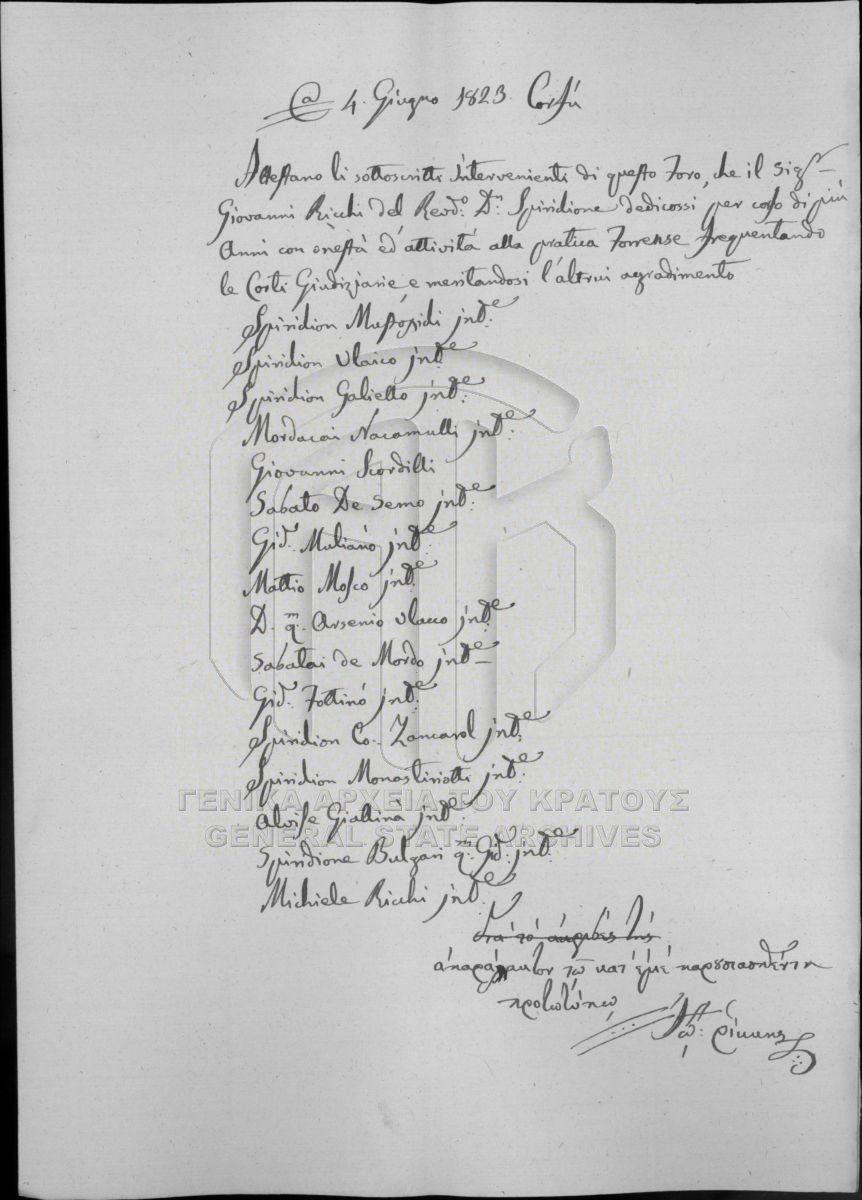 4. Giugno 1823. Corfù
Attestano li sottoscritti Intervenienti di questo Foro, che il Sigr
Giovanni Ricchi del Revdo. Dn. Spiridione dedicossi per corso di più
Anni con onestà ed attività alla pratica Forense frequentando
le Corti Giudiziarie e meritandosi l'altrui agradimento
Spiridion Mustoxidi intde.
Spiridion Vlaico intde.
Spiridion Galietto intde.
Mordacai Nacamulli intde.
Giovanni Scordilli
Sabato De Semo intde.
Gio. Muliano intde.
Mattio Mosco intde.
D. qm. Arsenio Vlaco intde.
Sabatai de Mordo intde
Gio. Fottinò intde.
Spiridion Co. Zancarol intde.
Spiridion Monastiriotti intde.
Alvise Giallinà intde.
Spiridione Bulgari qm. Gio. intde.
Michiele Ricchi intde.
ἀπαράλακτον τῷ κατ' ἐμὲ παρουσιασθέντι
προτοτύπῳ
Ἰω: ρίκκης
ΓΕΝΙΚΑ ΑΡΧΕΙΑ ΤΟΥ ΚΡΑΤΟΥΣ
GENERAL STATE ARCHIVES